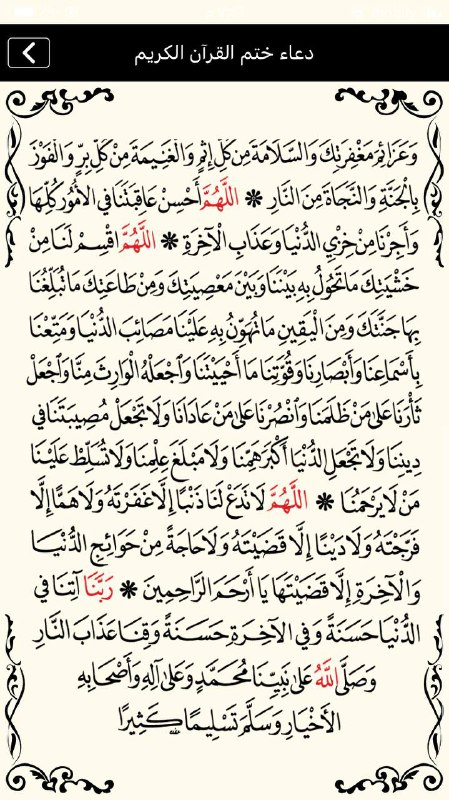 دعاء ختم القرآن الكريم
وَعَزَائِمَ مَغْفِرَتِكَ وَالسَّلَامَةَ مِنْ كُلِّ إِثْمٍ وَالْغَنِيمَةَ مِنْ كُلِّ بِرٍّ وَالْفَوْزَ
بِالْجَنَّةِ وَالنَّجَاةَ مِنَ النَّارِ ❋ اللَّهُمَّ أَحْسِنْ عَاقِبَتَنَا فِي الْأُمُورِ كُلِّهَا
وَأَجِرْنَا مِنْ خِزْيِ الدُّنْيَا وَعَذَابِ الْآخِرَةِ ❋ اللَّهُمَّ اقْسِمْ لَنَا مِنْ
خَشْيَتِكَ مَا تَحُولُ بِهِ بَيْنَنَا وَبَيْنَ مَعْصِيَتِكَ وَمِنْ طَاعَتِكَ مَا تُبَلِّغُنَا
بِهَا جَنَّتَكَ وَمِنَ الْيَقِينِ مَا تُهَوِّنُ بِهِ عَلَيْنَا مَصَائِبَ الدُّنْيَا وَمَتِّعْنَا
بِأَسْمَاعِنَا وَأَبْصَارِنَا وَقُوَّتِنَا مَا أَحْيَيْتَنَا وَاجْعَلْهُ الْوَارِثَ مِنَّا وَاجْعَلْ
ثَأْرَنَا عَلَى مَنْ ظَلَمَنَا وَانْصُرْنَا عَلَى مَنْ عَادَانَا وَلَا تَجْعَلْ مُصِيبَتَنَا فِي
دِينِنَا وَلَا تَجْعَلِ الدُّنْيَا أَكْبَرَ هَمِّنَا وَلَا مَبْلَغَ عِلْمِنَا وَلَا تُسَلِّطْ عَلَيْنَا
مَنْ لَا يَرْحَمُنَا ❋ اللَّهُمَّ لَا تَدَعْ لَنَا ذَنْبًا إِلَّا غَفَرْتَهُ وَلَا هَمًّا إِلَّا
فَرَّجْتَهُ وَلَا دَيْنًا إِلَّا قَضَيْتَهُ وَلَا حَاجَةً مِنْ حَوَائِجِ الدُّنْيَا
وَالْآخِرَةِ إِلَّا قَضَيْتَهَا يَا أَرْحَمَ الرَّاحِمِينَ ❋ رَبَّنَا آتِنَا فِي
الدُّنْيَا حَسَنَةً وَفِي الْآخِرَةِ حَسَنَةً وَقِنَا عَذَابَ النَّارِ
وَصَلَّى اللَّهُ عَلَى نَبِيِّنَا مُحَمَّدٍ وَعَلَى آلِهِ وَأَصْحَابِهِ
الْأَخْيَارِ وَسَلَّمَ تَسْلِيمًا كَثِيرًا